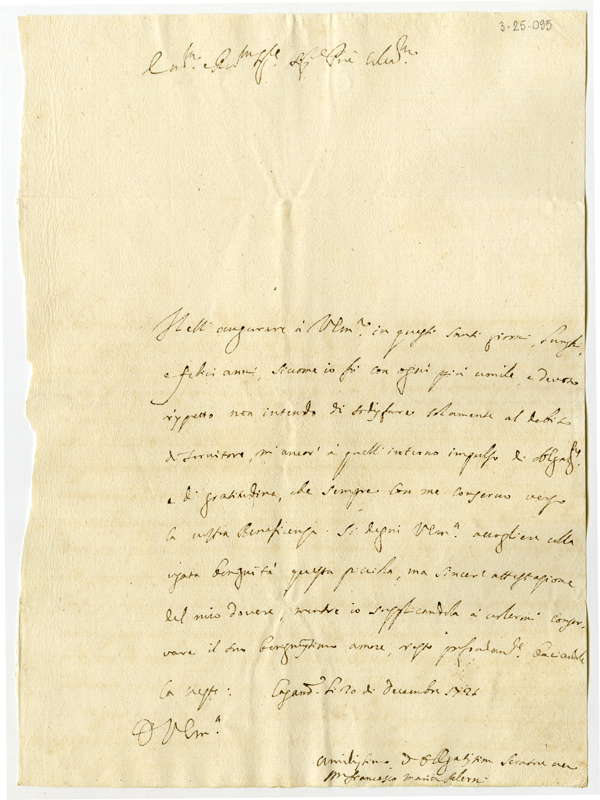 3-25-095
Nell augurare à VSIll.ma in questi Santi giorni, lunghi,
e felici anni, siccome io fò con ogni più umile, e devoto
rispetto non intendo di sodisfare solamente al debito
di servitore, m'ancor' à quell'interno impulso di obligaz.ne
e di gratitudine, che sempre con me conservo verso
la vostra Beneficenza. Si degni VSIll.ma accogliere colla
usata benignità questa piccola, ma sincer' attestazione
del mio dovere, mentre io supplicandola à volermi conser,
vare il suo benignissimo amore, resto profondam.te baciandole
la veste: li 20 di Decembre 1721
Di VSIll.ma
umilissimo, Obligatissim Servitore
Francesco Maria